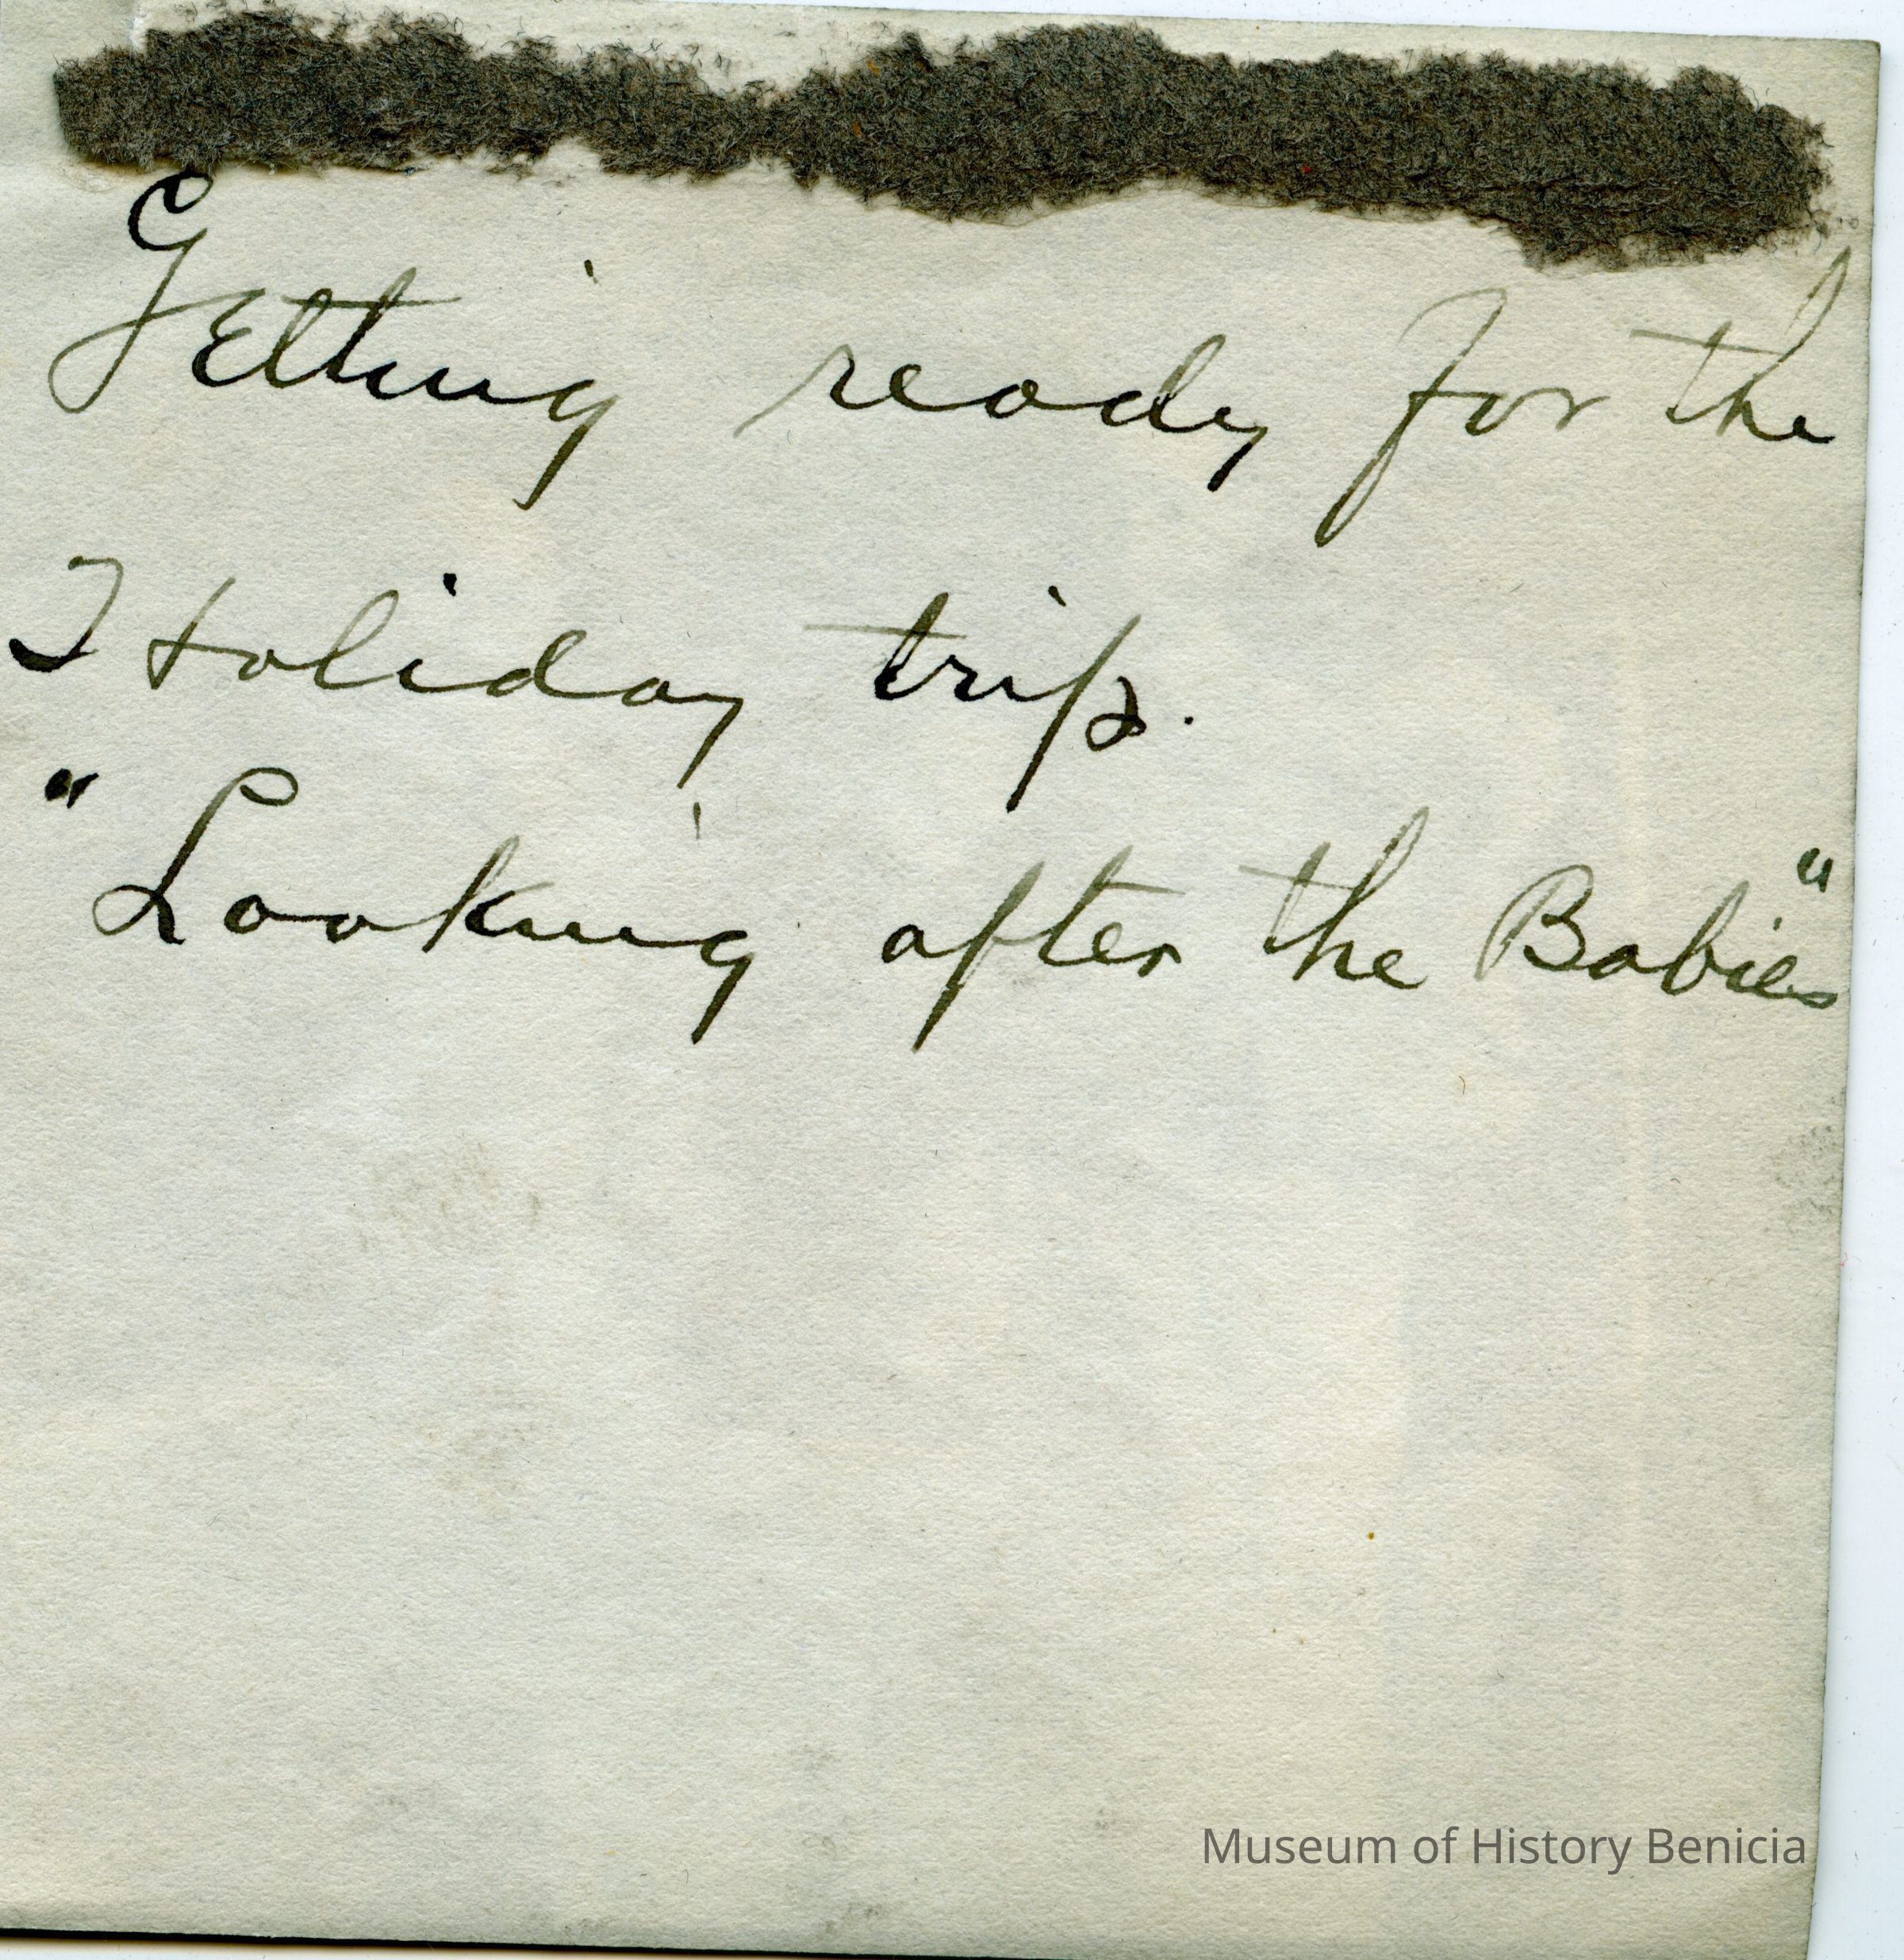 Getting ready for the
Holiday trip.
"Looking after the Babies"
Museum of History Benicia